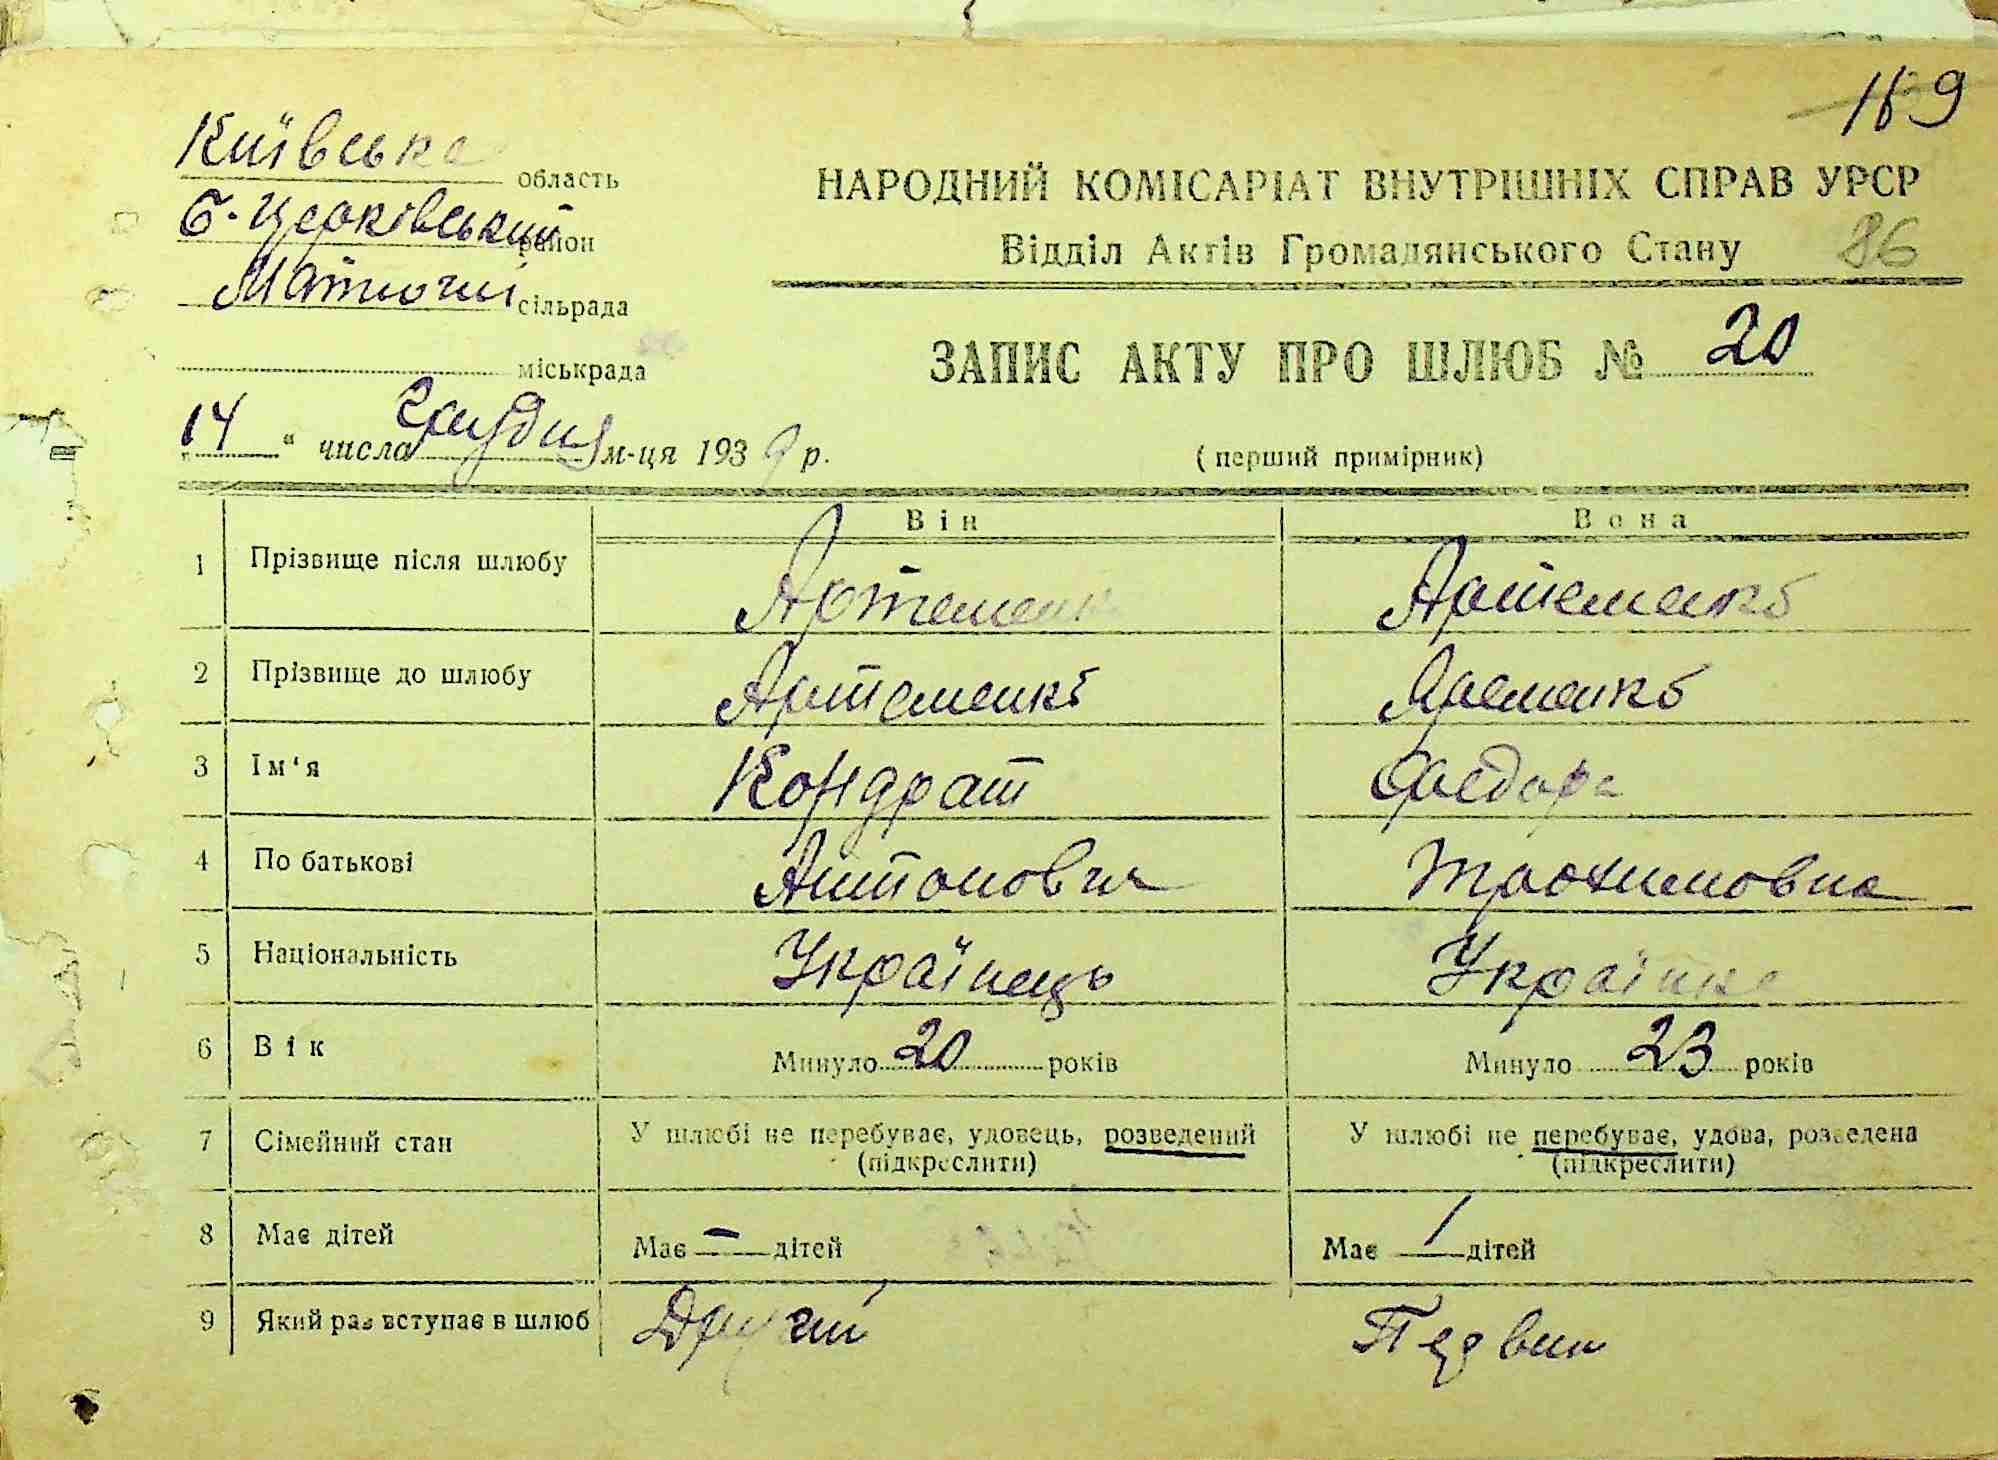 189
Київська область
Б-Церківський район
Матюші сільрада
міськрада
НАРОДНИЙ КОМІСАРІАТ ВНУТРІШНІХ СПРАВ УРСР
Відділ Актів Громадянського Стану 86
ЗАПИС АКТУ ПРО ШЛЮБ № 20
„14“ числа Грудня м-ця 1939 р.
(перший примірник)
Він Вона
1 Прізвище після шлюбу Артеменко Артеменко
2 Прізвище до шлюбу Артеменко Яременко
3 Ім'я Кондрат Федора
4 По батькові Антонович Трохимовна
5 Національність Українець Українка
6 Вік Минуло 20 років Минуло 23 років
7 Сімейний стан У шлюбі не перебуває, удовець, розведений У шлюбі не перебуває, удова, розведена
(підкреслити) (підкреслити)
8 Має дітей Має – дітей Має / дітей
9 Який раз вступає в шлюб Другий Первий